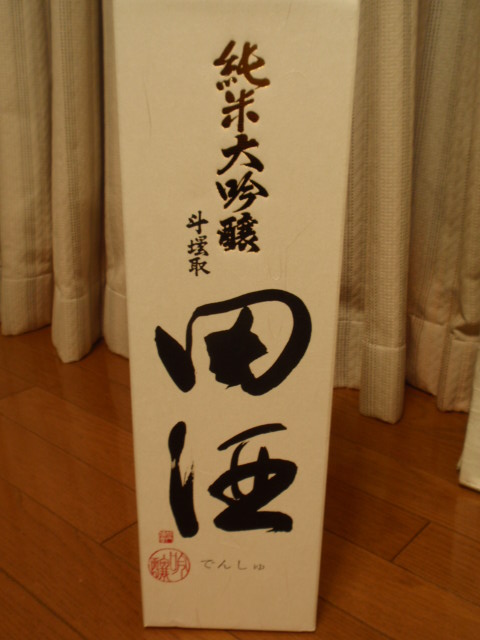 純米大吟醸
斗壜取
田酒
でんしゅ